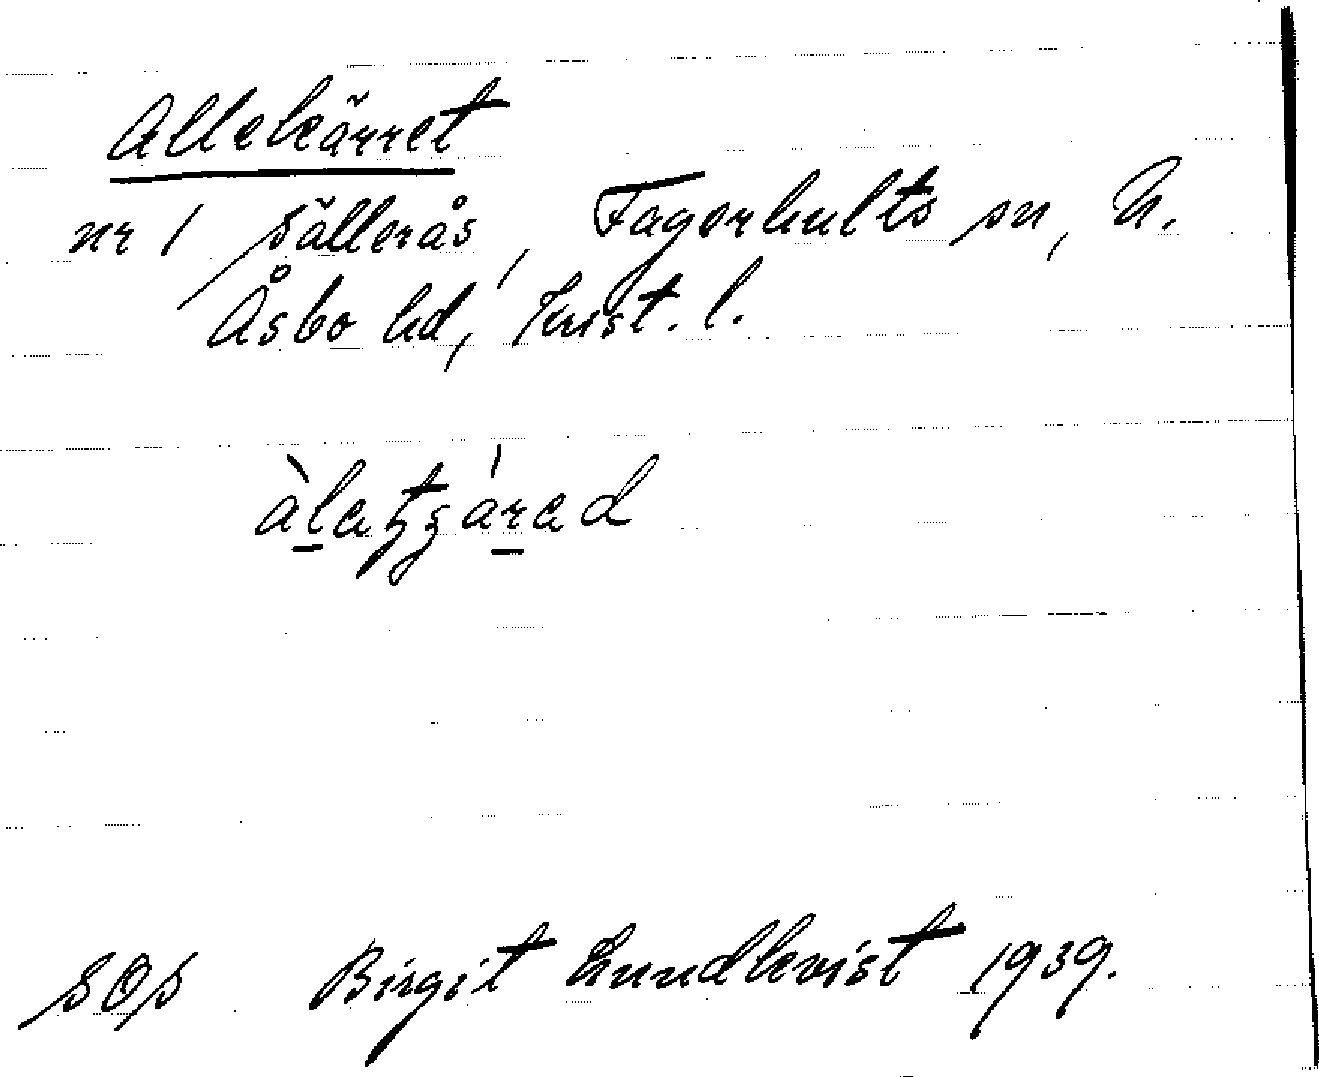 Allekärret
nr 1 Sällerås, Fagerhults sn, N.
Åsbo hd, Krist. l.
SOS Birgit Lundkvist 1939.